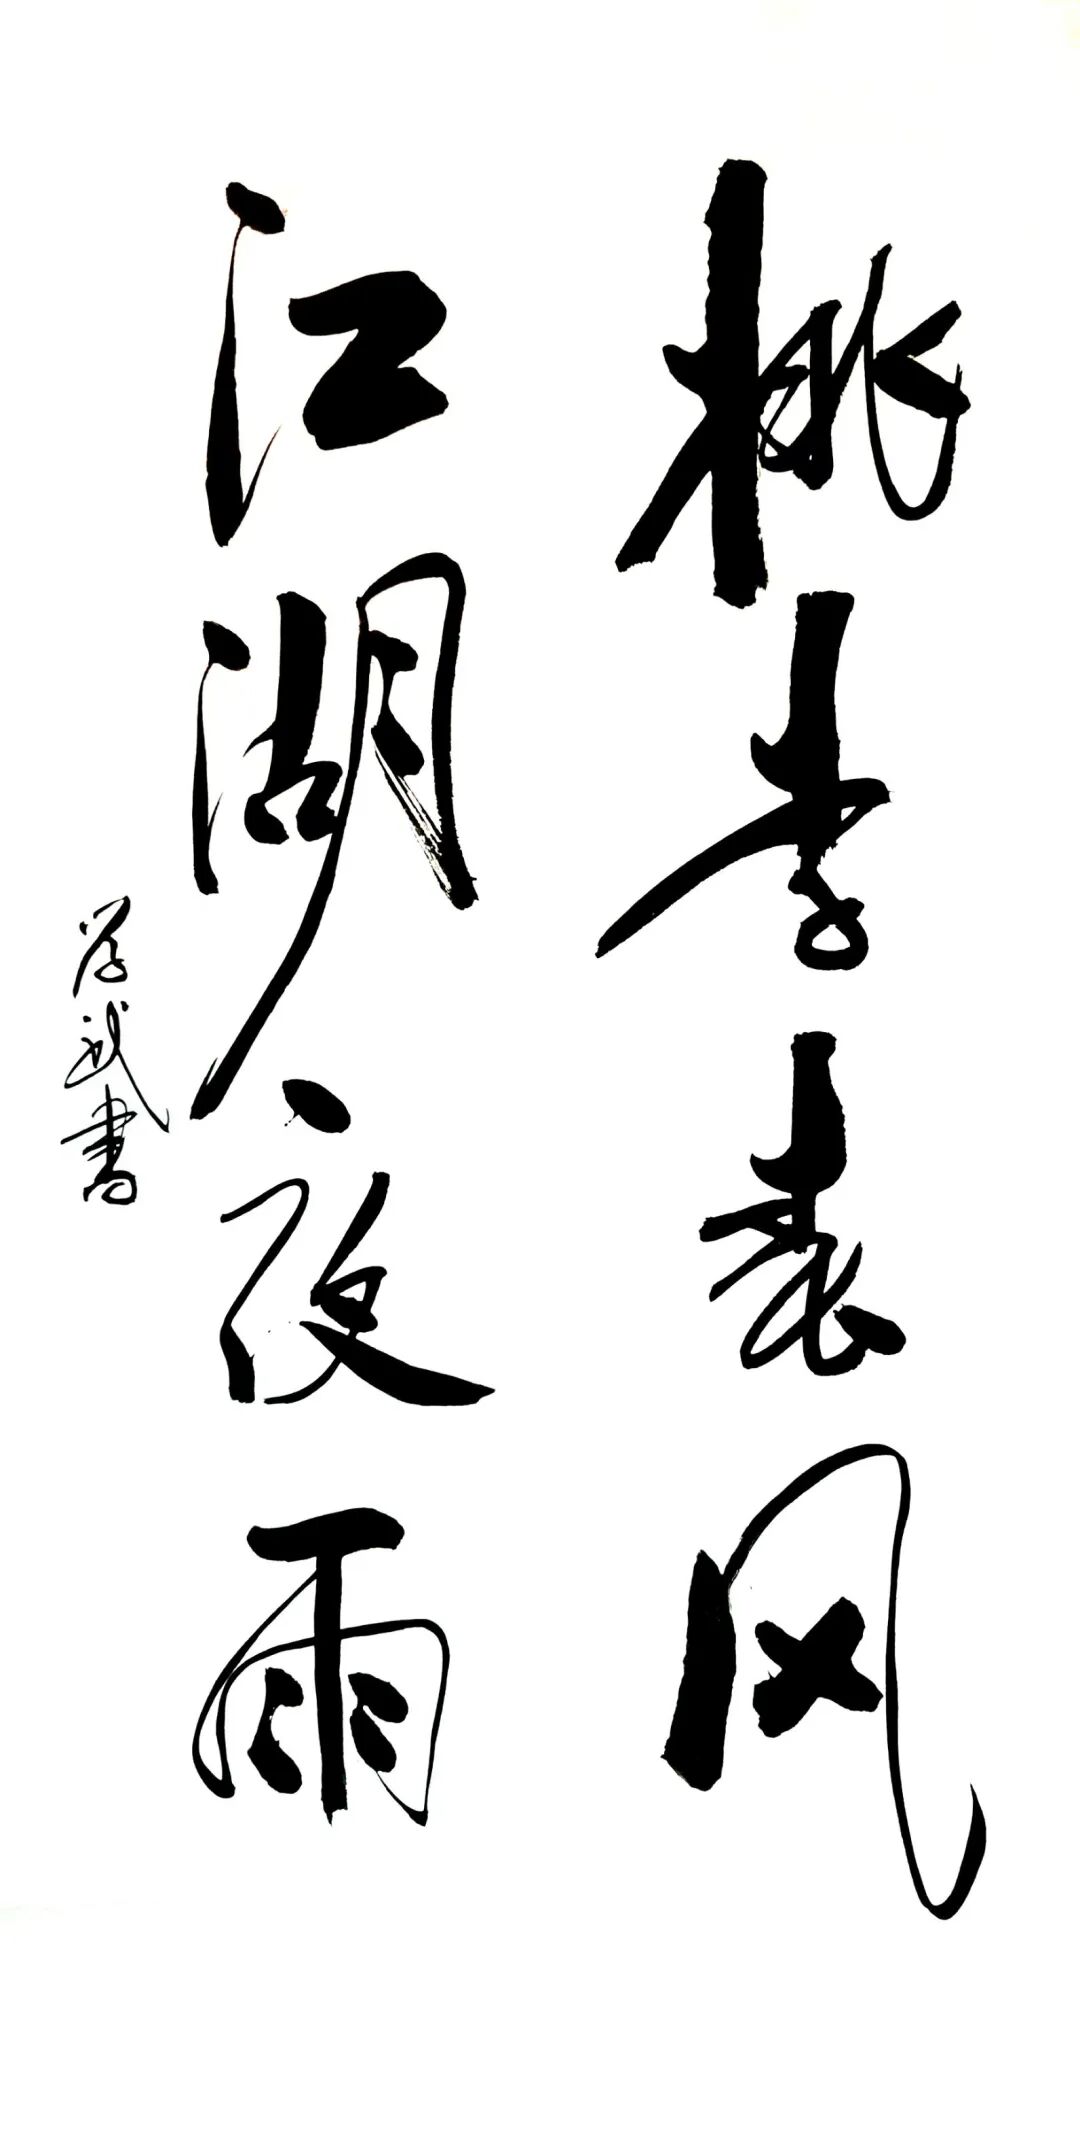 桃李春风
江湖夜雨
学武書